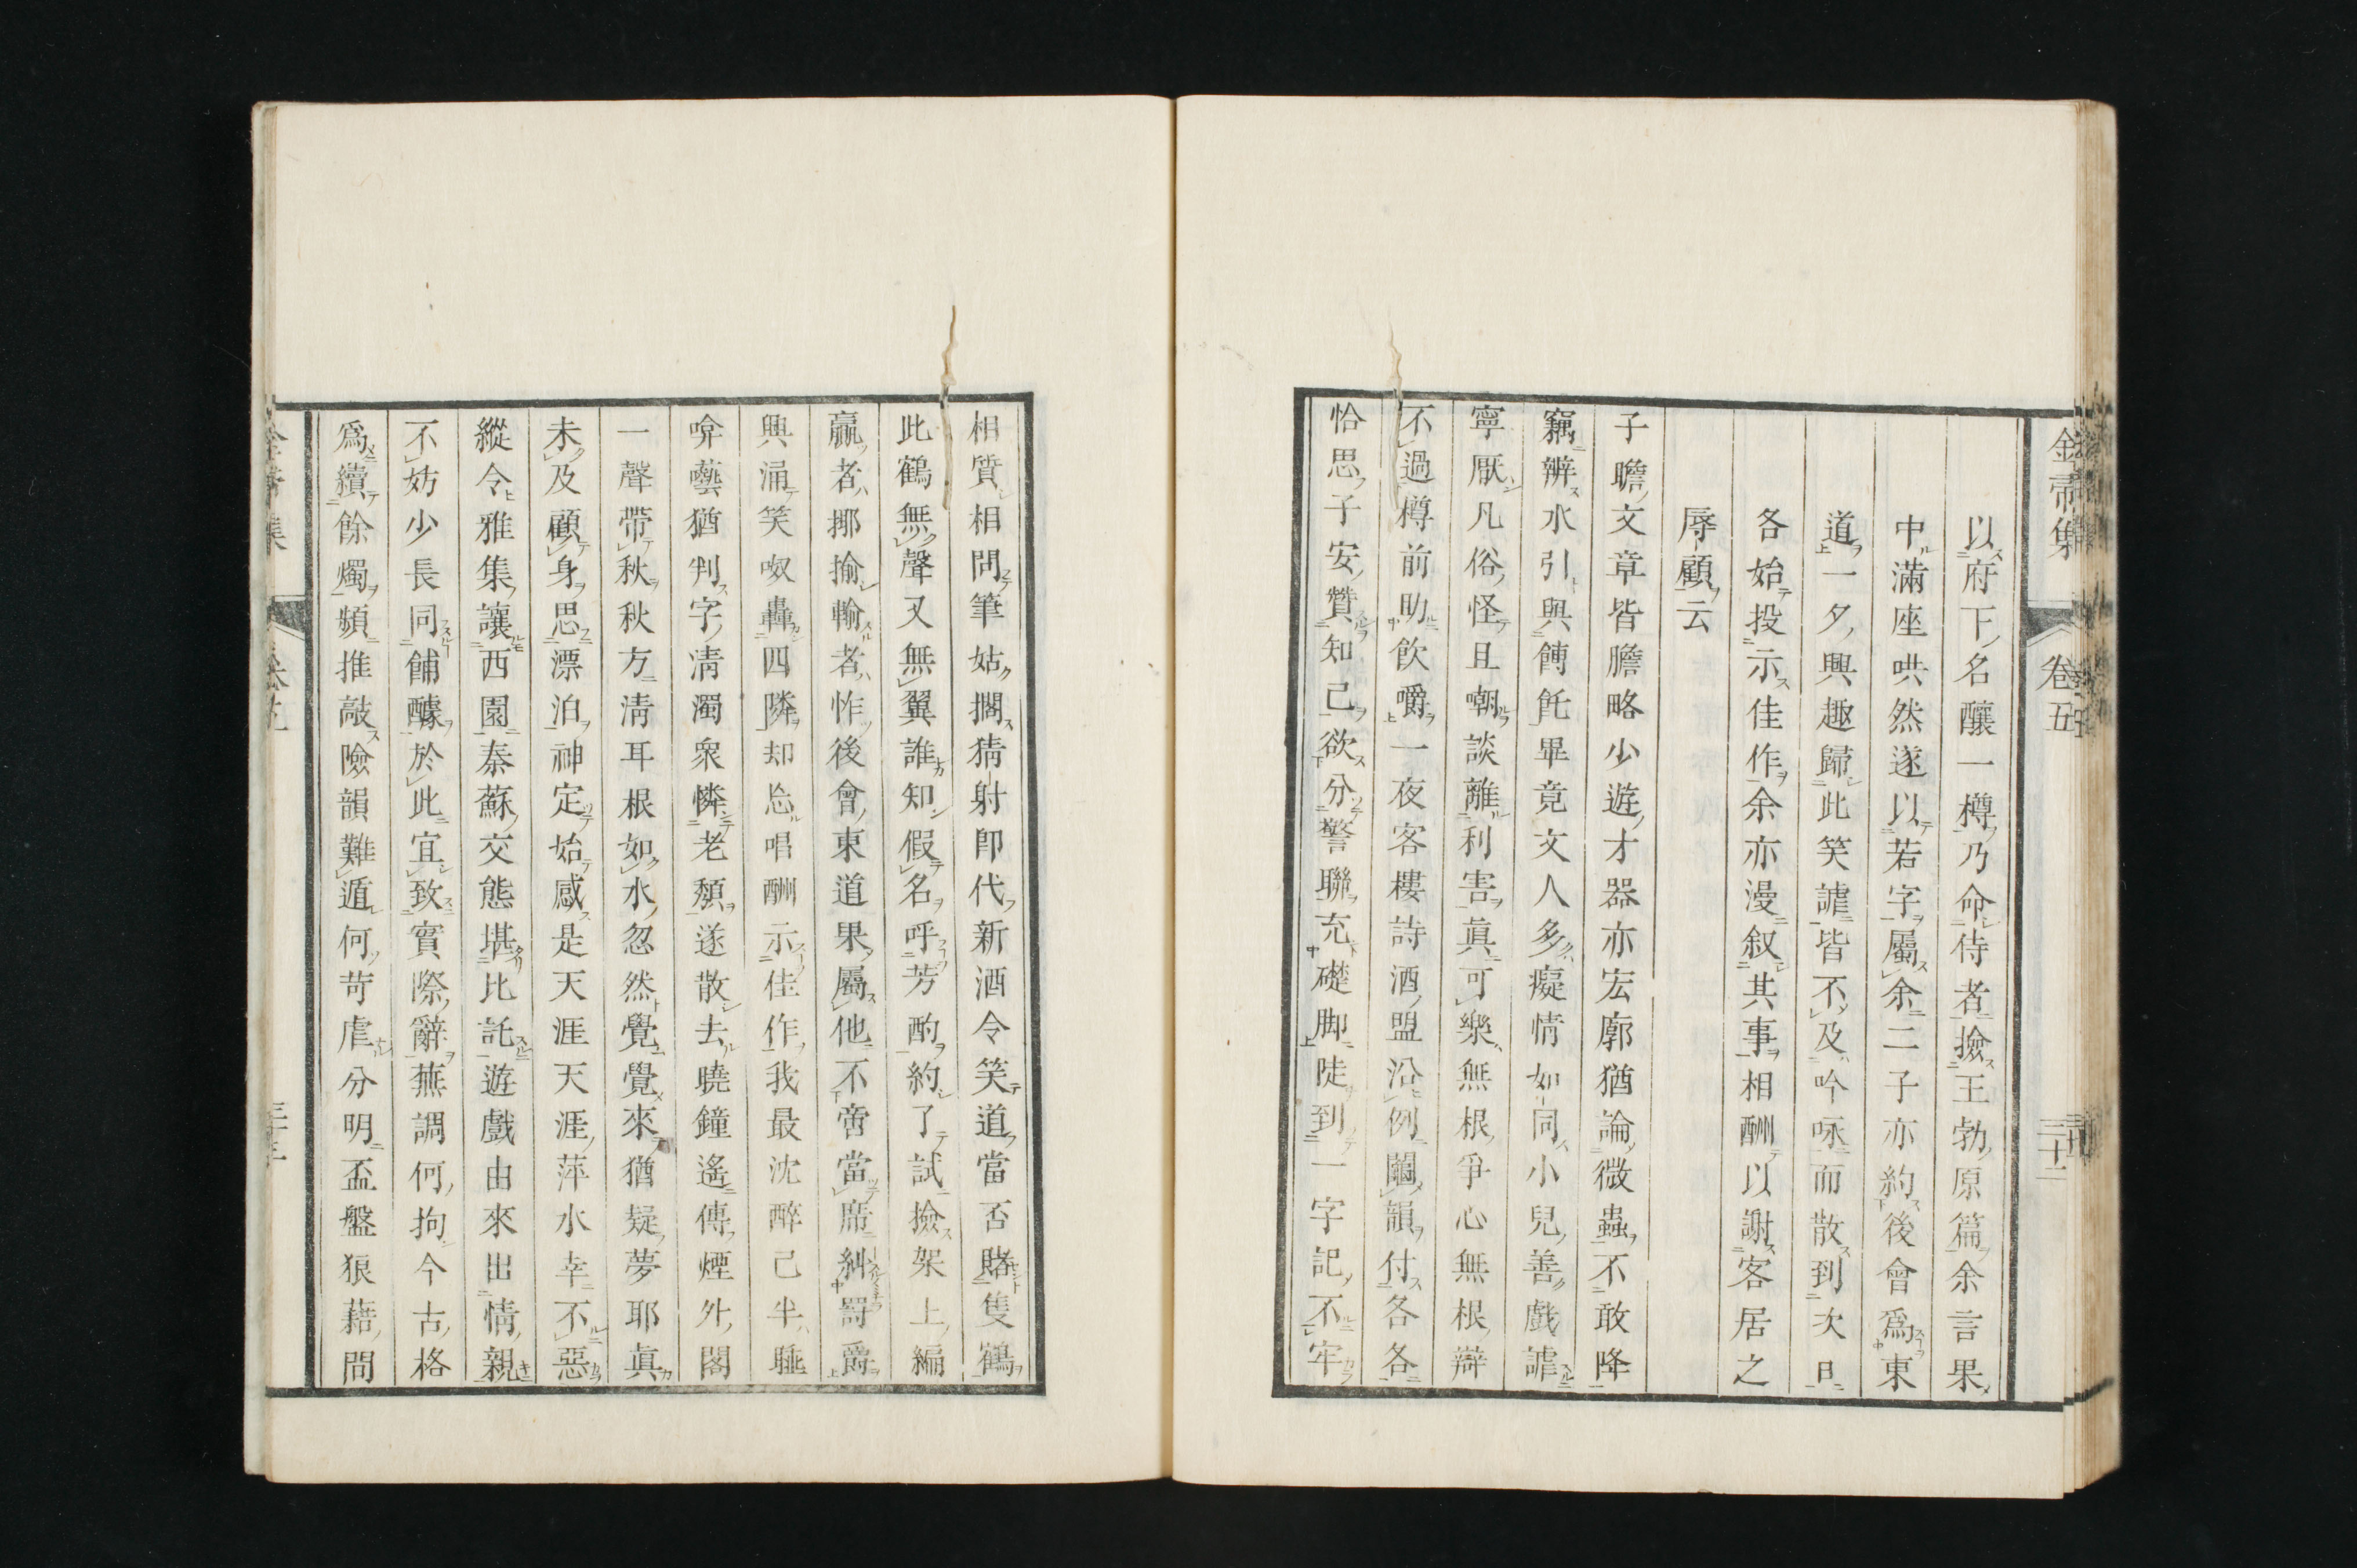 金帚集
卷五
三十二
以府下名釀一樽乃命侍者撿王勃原篇余言果
中滿座哄然遂以若字屬余二子亦約後會爲東
道一夕興趣歸此笑謔皆不及吟咏而散到次日
各始投示佳作余亦漫叙其事相酬以謝客居之
辱顧云
子瞻文章皆膽略少遊才器亦宏廓猶論微蟲不敢降
竊辨水引與餺飥畢竟文人多癡情如同小兒善戲謔
寧厭凡俗怪且嘲談離利害眞可樂無根爭心無根辯
不過樽前助飲嚼一夜客樓詩酒盟沿例鬮韻付各各
恰思子安贊知己欲分警聯充礎脚陡到一字記不牢
相質相問筆姑擱猜射卽代新酒令笑道當否賭隻鶴
此鶴無聲又無翼誰知假名呼芳酌約了試撿架上編
贏者揶揄輸者怍後會東道果屬他不啻當席糾罰爵
興涌笑呶轟四隣却忘唱酬示佳作我最沈醉己半睡
唫藝猶判字淸濁衆憐老頽遂散去曉鐘遙傳煙外閣
一聲帶秋秋方淸耳根如水忽然覺覺來猶疑夢耶眞
未及顧身思漂泊神定始感是天涯天涯萍水幸不惡
縱令雅集讓西園秦蘇交態堪比託遊戲由來出情親
不妨少長同餔醵於此宜致實際辭蕪調何拘今古格
爲續餘燭頻推敲險韻難遁何苛虐分明盃盤狼藉問